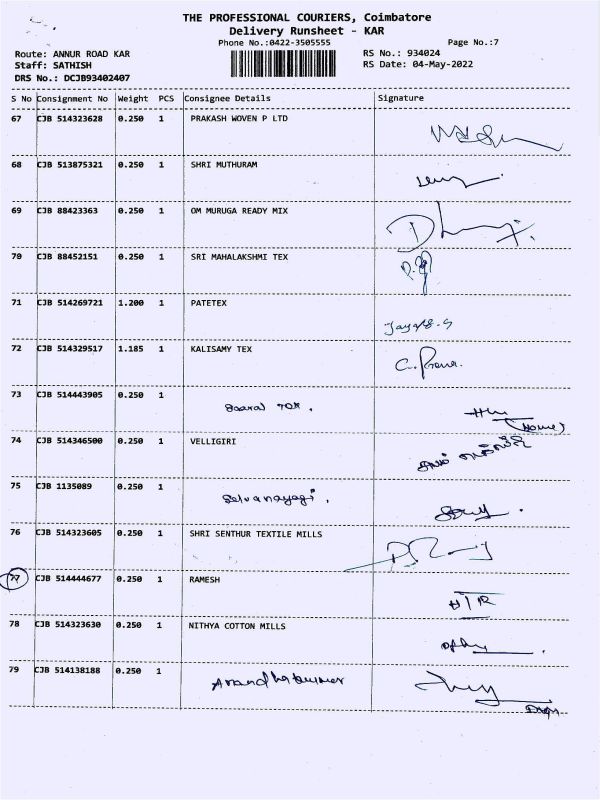 THE PROFESSIONAL COURIERS, Coimbatore
Delivery Runsheet - KAR
Phone No.:0422-3505555
Page No.:7
Route: ANNUR ROAD KAR
RS No.: 934024
Staff: SATHISH
RS Date: 04-May-2022
DRS No.: DCJB93402407
S No Consignment No Weight PCS Consignee Details Signature
67 CJB 514323628 0.250 1 PRAKASH WOVEN P LTD
68 CJB 513875321 0.250 1 SHRI MUTHURAM
69 CJB 88423363 0.250 1 OM MURUGA READY MIX
70 CJB 88452151 0.250 1 SRI MAHALAKSHMI TEX
71 CJB 514269721 1.200 1 PATETEX
72 CJB 514329517 1.185 1 KALISAMY TEX
73 CJB 514443905 0.250 1
(Home)
74 CJB 514346500 0.250 1 VELLIGIRI
75 CJB 1135089 0.250 1 Selvanayagi,
76 CJB 514323605 0.250 1 SHRI SENTHUR TEXTILE MILLS
77 CJB 514444677 0.250 1 RAMESH
78 CJB 514323630 0.250 1 NITHYA COTTON MILLS
79 CJB 514138188 0.250 1